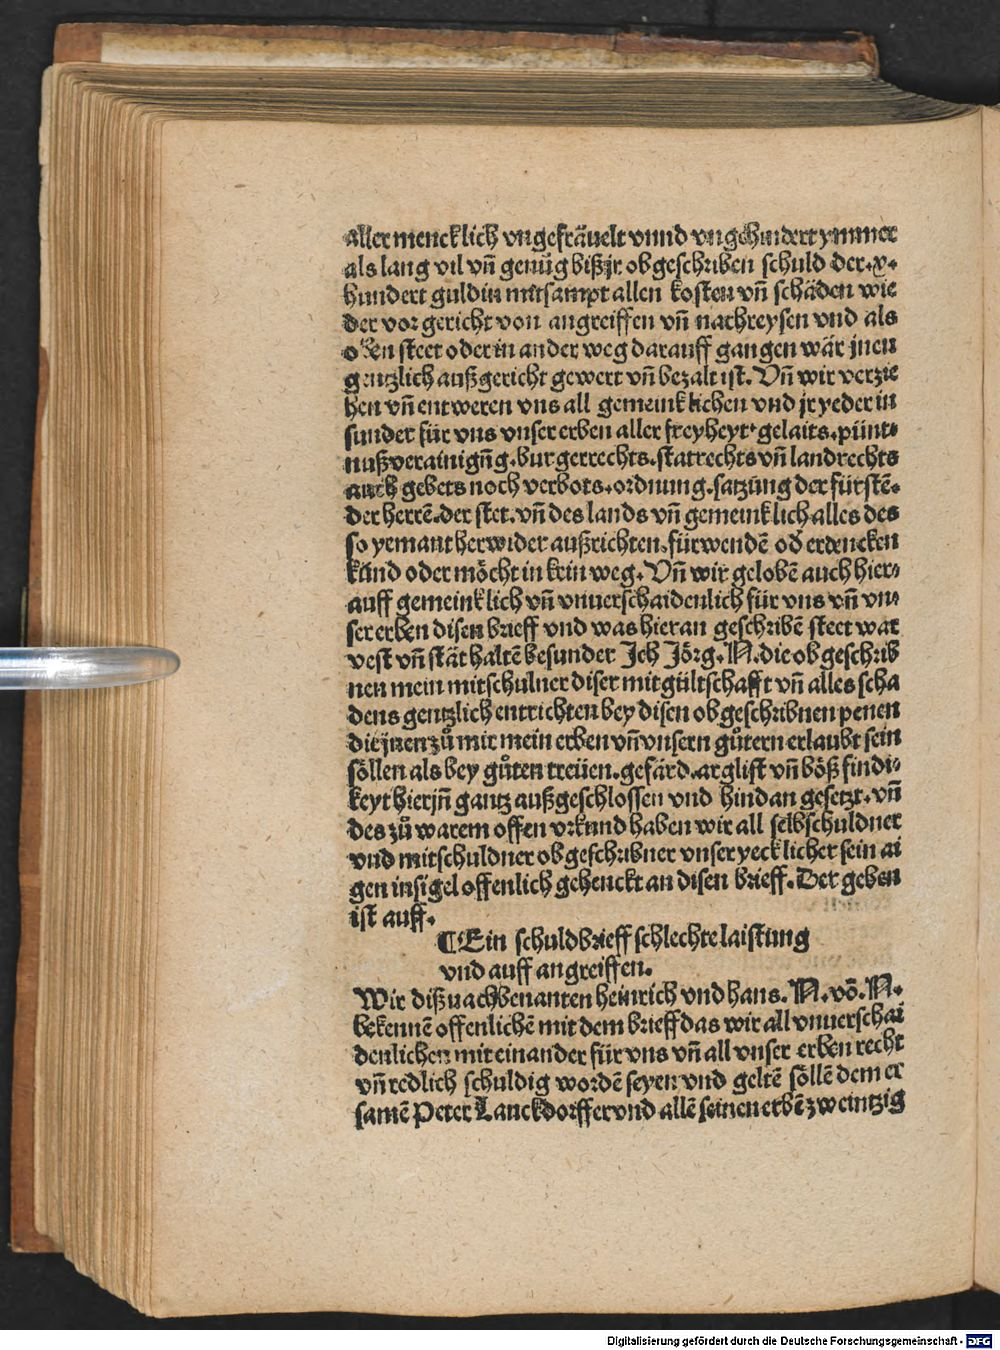 aller mencklich vngefräuelt vnnd vngehindert ymmer
als lang vil vñ genůg biß jr obgeschriben schuld der.x.
hundert guldin mitsampt allen kosten vñ schäden wie
der vor gericht von angreiffen vñ nachreysen vnd als
oben steet oder in ander weg darauff gangen wär jnen
gentzlich außgericht gewert vñ bezalt ist. Vñ wir verzie
hen vñ entweren vns all gemeinklichen vnd jr yeder in
sunder für vns vnser erben aller freyheyt.gelaits.pünt⸗
nuß verainigñg.burgerrechts.statrechts vñ landrechts
auch gebets noch verbots.ordnung.satzung der fürstē.
der herrē.der stet.vñ des lands vñ gemeinklich alles des
so yemant herwider außrichten.fürwendē od̄ erdencken
künd oder möcht in kein weg. Vñ wir gelobē auch hier⸗
auff gemeinklich vñ vnuerschaidenlich für vns vñ vn⸗
ser erben disen brieff vnd was hieran geschribē steet war
vest vñ stät haltē besunder Jch Jörg. N. die obgeschrib
nen mein mitschulner diser mitgültschafft vñ alles scha
dens gentzlich entrichten bey disen obgeschribnen penen
die jnen zů mir mein erben vñ vnsern gůtern erlaubt sein
söllen als bey gůten treüen.gefärd.arglist vñ böß findi⸗
keyt hierjñ gantz außgeschlossen vnd hindan gesetzt.vñ
des zů warem offen vrkund haben wir all selbschuldner
vnd mitschuldner obgeschribner vnser yecklicher sein ai
gen insigel offenlich gehenckt an disen brieff. Der geben
ist auff.
¶Ein schuldbrieff schlechte laistung
vnd auff angreiffen.
Wir diß nachbenanten heinrich vnd hans. N. vō. N.
bekennē offenlichē mit dem brieff das wir all vnuerschai
denlichen mit einander für vns vñ all vnser erben recht
vñ redlich schuldig wordē seyen vnd geltē söllē dem er
samē Peter Lanckdorffer vnd allē seinen erbē zweintzig
Digitalisierung gefördert durch die Deutsche Forschungsgemeinschaft - DFG